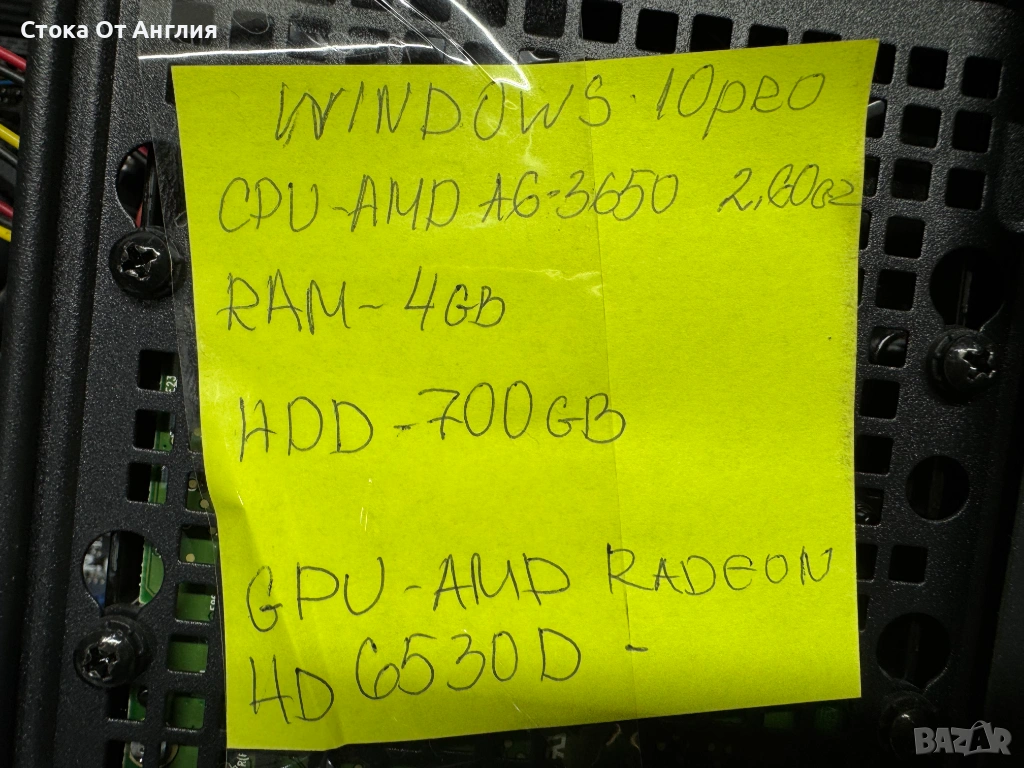 Стока От Англия
WINDOWS · 10pro
CPU-AMD A6-3650 2,60GZ
RAM- 4GB
HDD-700GB
GPU-AMD RADEON
HD 6530D -
BAZAR